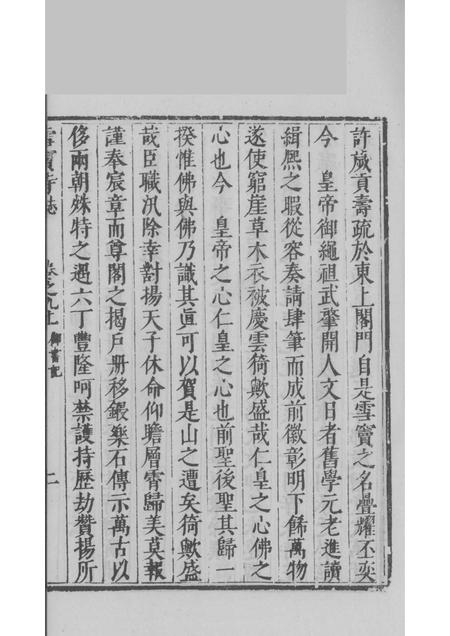 許歲貢壽疏於東上閤門自是雪竇之名疊耀丕奕
今 皇帝御繩祖武肇開人文日者舊學元老進讀
緝熙之暇從容奏請肆筆而成前徽彰明下飾萬物
遂使窮崖草木衣被慶雲猗歟盛哉仁皇之心佛之
心也今 皇帝之心仁皇之心也前聖後聖其歸一
揆惟佛與佛乃識其眞可以賀是山之遭矣猗歟盛
哉臣職汛除幸對揚天子休命仰瞻層霄歸美莫報
謹奉宸章而尊閣之揭戸册移鍜樂石傳示萬古以
侈兩朝殊特之遇六丁豐隆呵禁護持歷劫贊揚所
雪竇寺誌 卷之九上 御書記 二